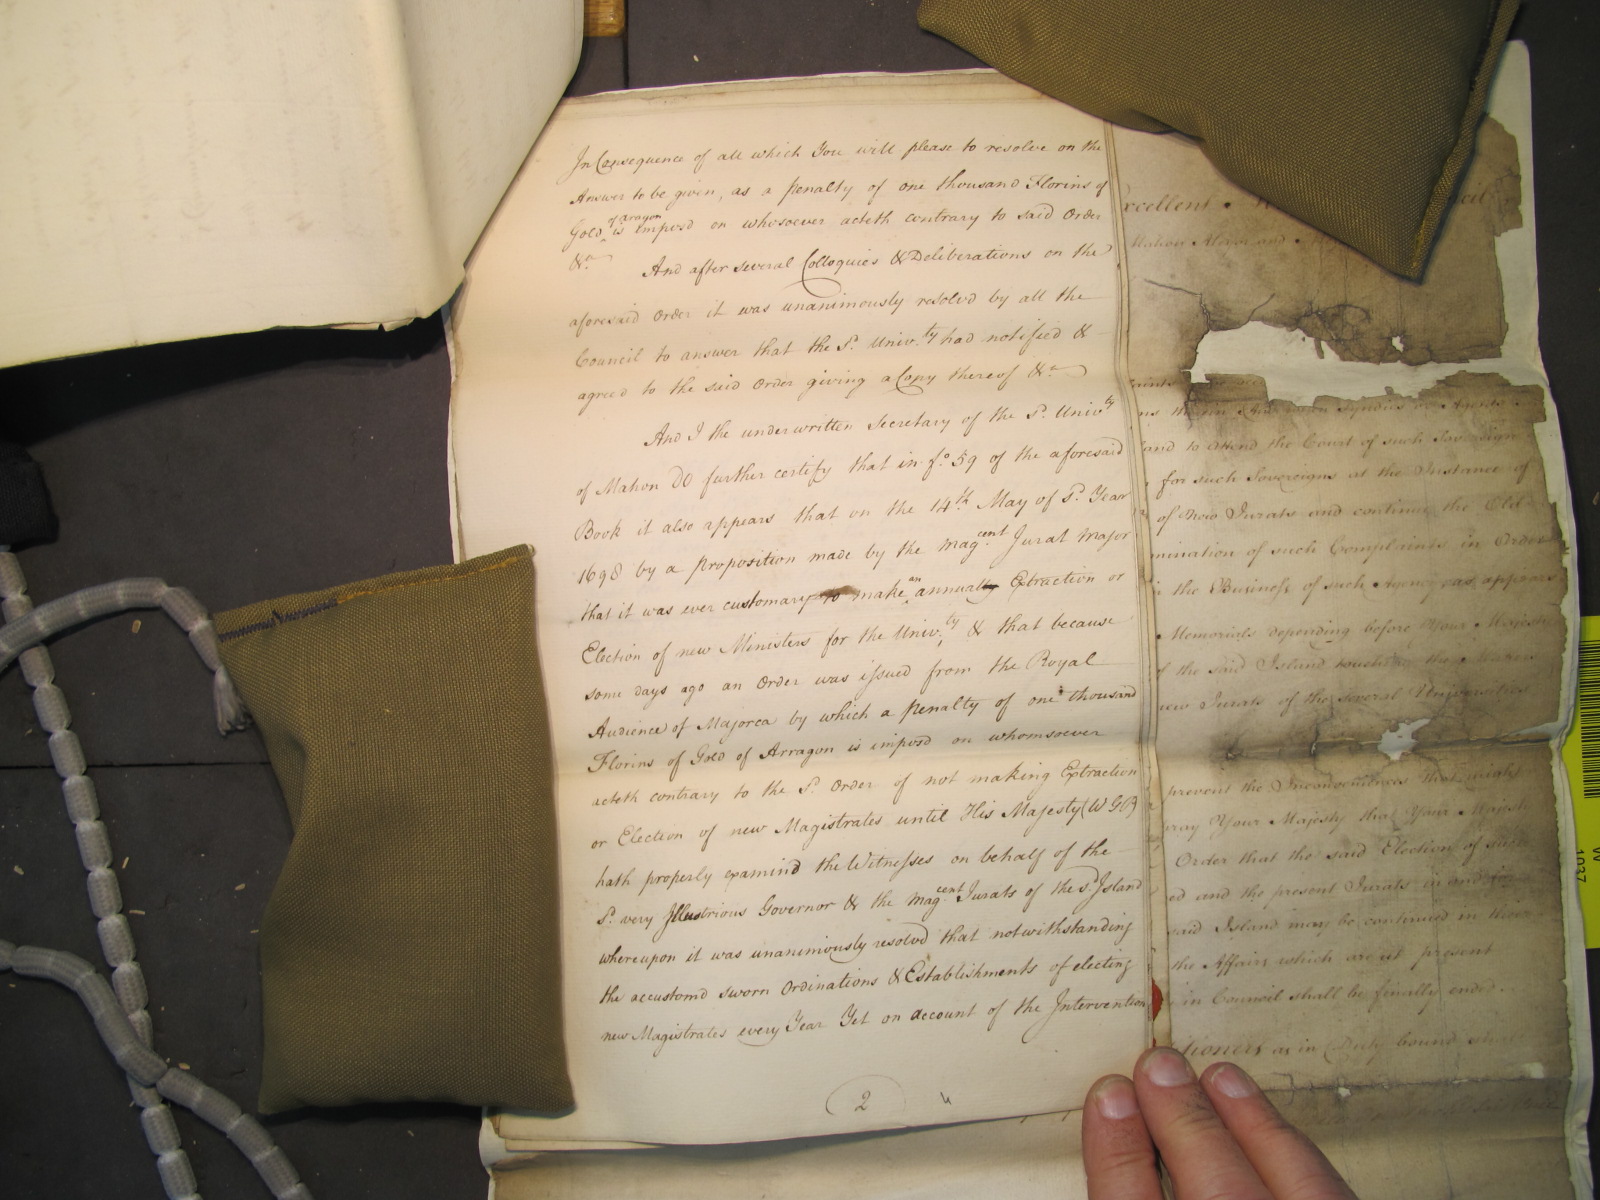 In Consequence of all which You will please to resolve on the
Answer to be given, as a penalty of one thousand Florins of
Gold of Aragon is imposd on whosoever acteth contrary to said Order
&c.
And after several Colloquies & Deliberations on the
aforesaid Order it was unanimously resolvd by all the
Council to answer that the Sd. Univ.ty had notified &
agreed to the said Order giving a Copy thereof &c.
And I the underwritten Secretary of the Sd. Univty
of Mahon Do further certify that in fo. 59 of the aforesaid
Book it also appears that on the 14th May of Sd. Year
1698 by a proposition made by the Magcent Jurat Major
that it was ever customary to make an annually Extraction or
Election of new Ministers for the Univ.ty & that because
some days ago an Order was issued from the Royal
Audience of Majorca by which a penalty of one thousand
Florins of Gold of Arragon is imposd on whomsoever
acteth contrary to the Sd. Order of not making Extraction
or Election of new Magistrates until His Majesty (W G P)
hath properly examind the Witnesses on behalf of the
Sd. very Illustrious Governor & the Magcent Jurats of the Sd. Island
whereupon it was unanimously resolvd that notwithstanding
the accustomd sworn Ordinations & Establishments of electing
new Magistrates every Year Yet on account of the Intervention
2
xcellent
Mahon Alayor and
and to attend the Court of such Sovereign
for such Sovereigns at the Instance of
of New Jurats and continue the Old
mination of such Complaints in Order
the Business of such Agency as appears
Memorials depending before Your Majesty
of the said Island touching the
new Jurats of the several Universities
prevent the Inconveniences that might
pray Your Majesty that Your Majesty
Order that the said Election of such
ed and the present Jurats in and for
said Island may be continued in their
the Affairs which are at present
in Council shall be finally ended.
tioners as in Duty bound shall
1037